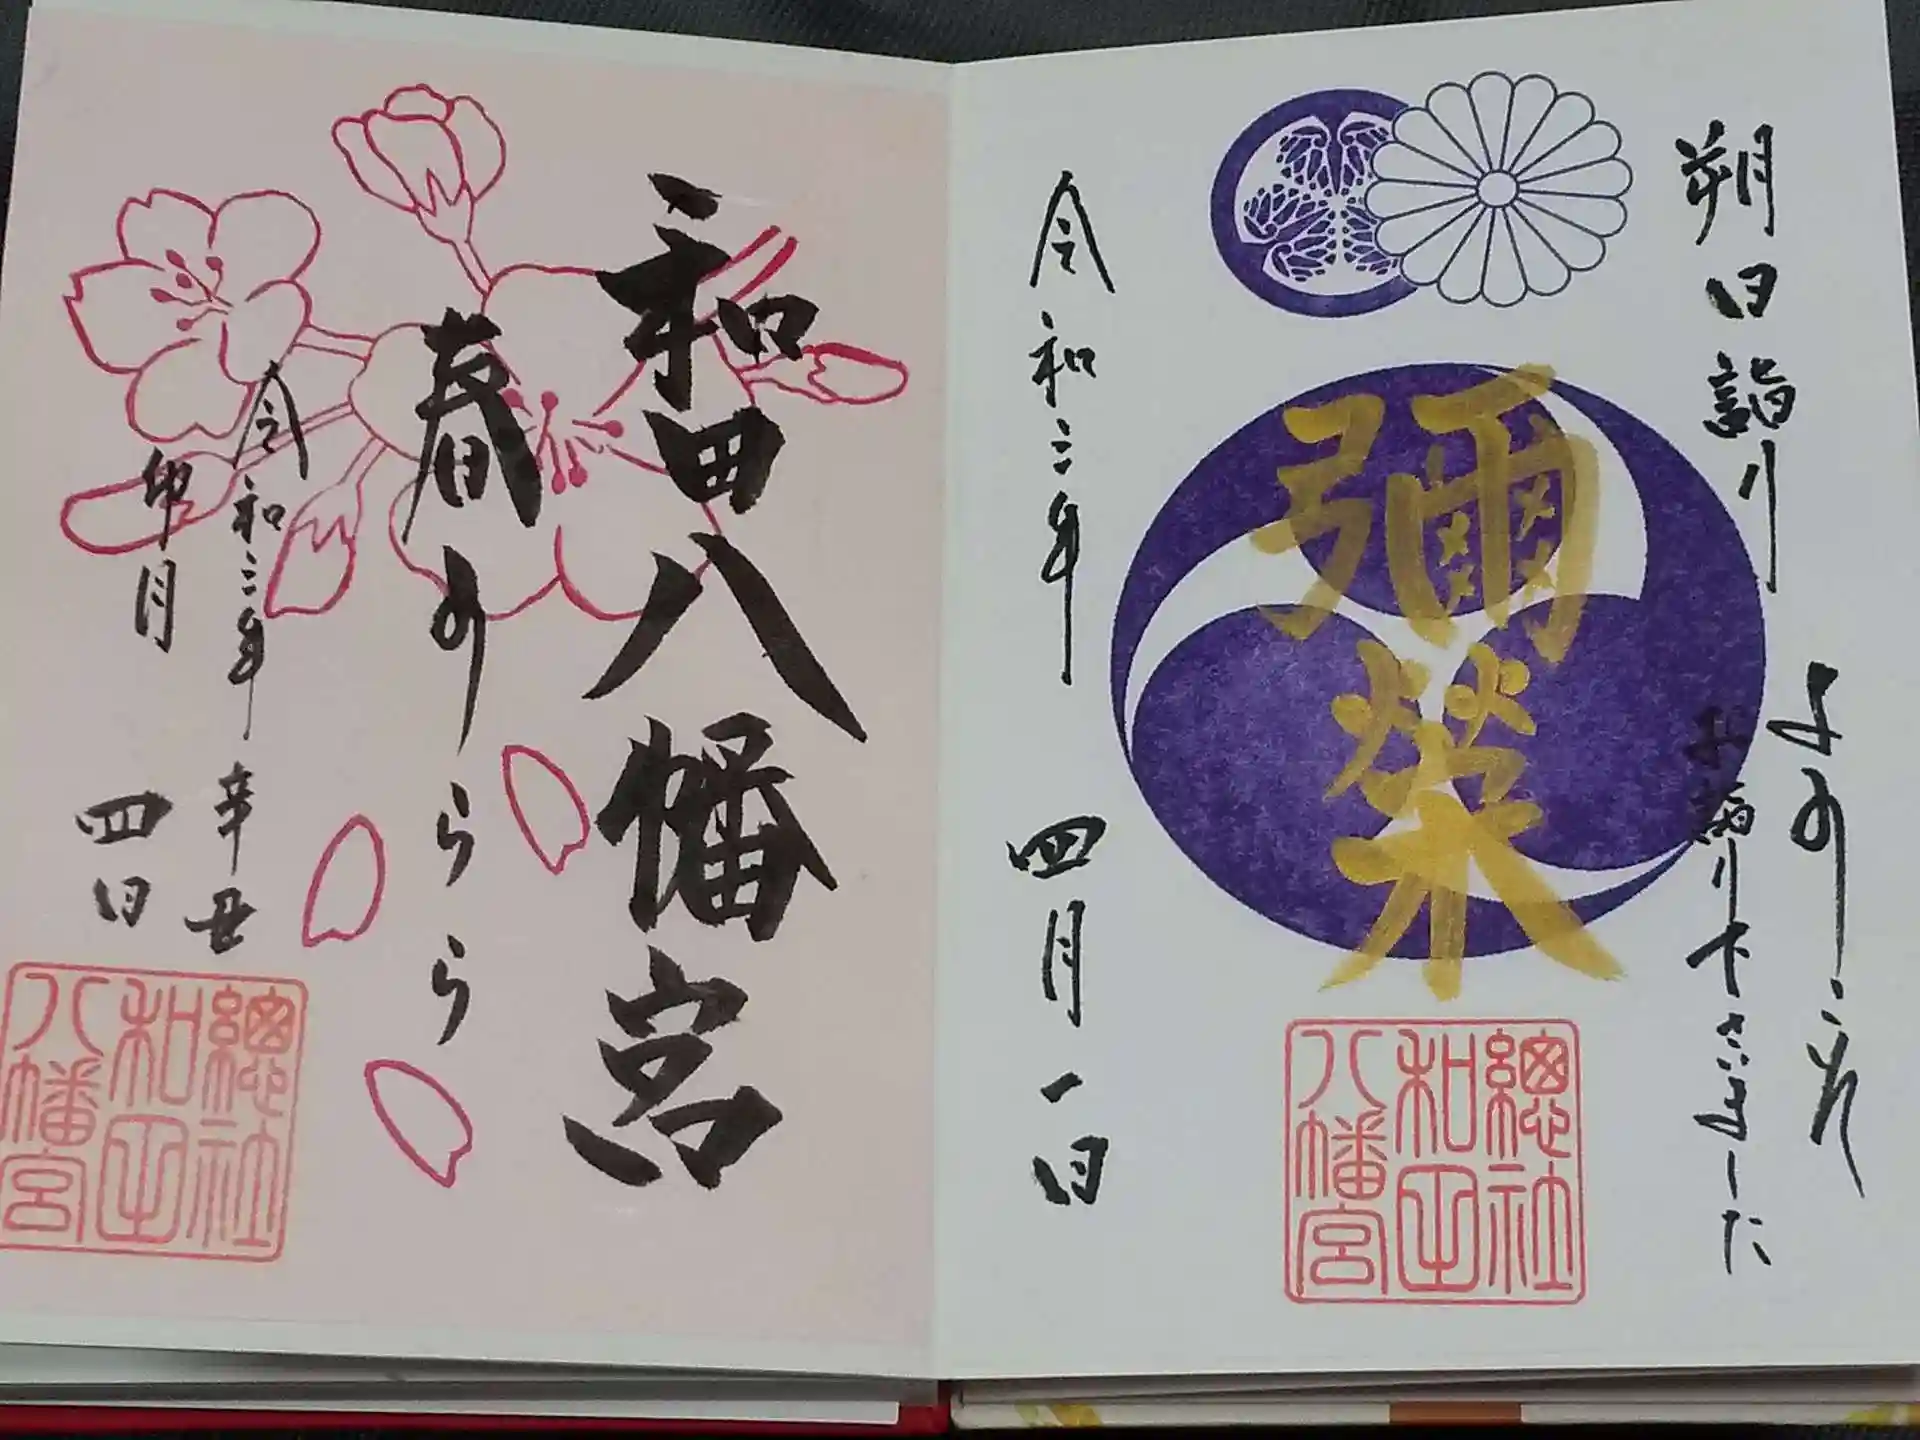 朔日詣り
お詣り下さいました
彌榮
令和三年 四月一日
總社
和田
八幡宮
和田八幡宮
春のうらら
令和三年 辛丑
卯月 四日
總社
和田
八幡宮